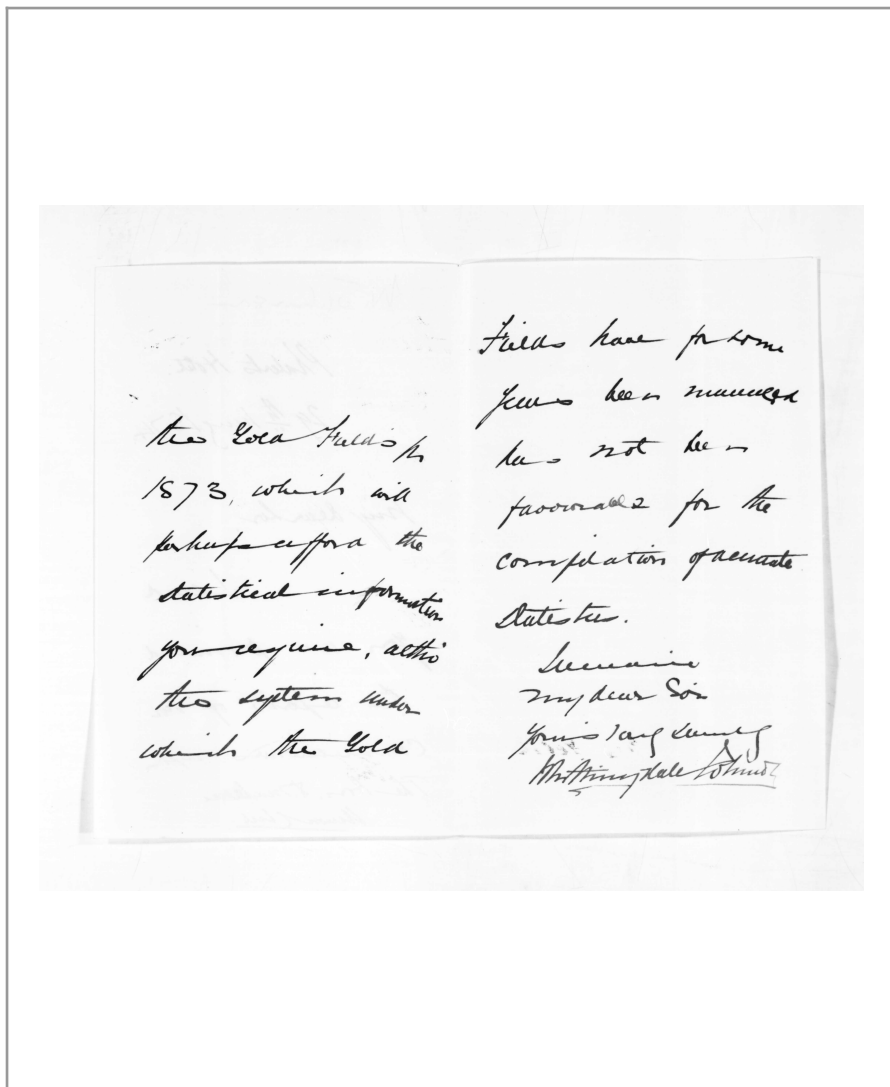 the Gold Fields for
1873, which will
perhaps afford the
statistical information
you require, altho
the system under
which the Gold
Fields have for some
years been managed
has not been
favourable for the
compilation of accurate
Statistics.
I remain
my dear Sir
Yours very sincerely